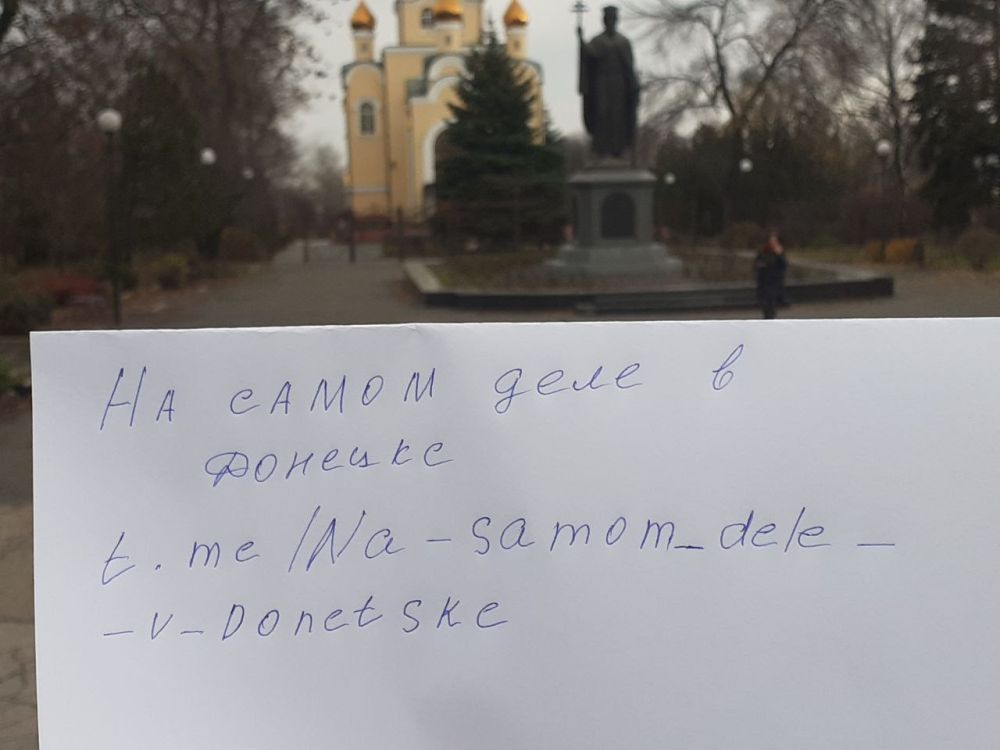 На самом деле в
Донецке
t.me/Na-samom_dele_
_v_Donetske